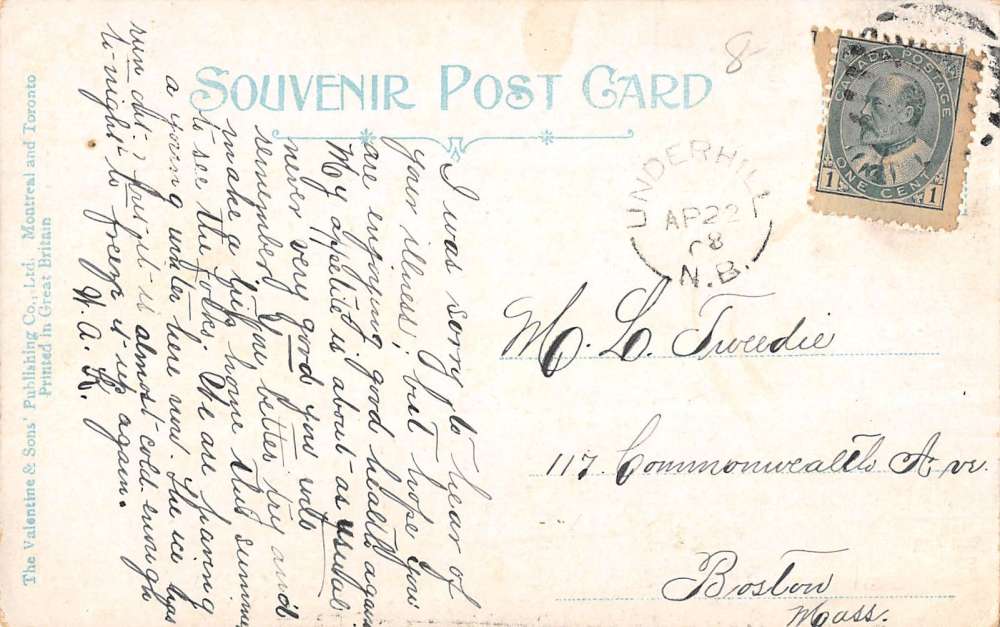 SOUVENIR POST CARD
8
CANADA POSTAGE
ONE CENT
1 1
UNDERHILL
AP 22
08
N.B.
M. L. Tweedie
117 Commonwealth Ave.
Boston
Mass.
I was sorry to hear of
your illness; but hope you
are enjoying good health again
My appetite is about as usual
never very good you will
remember. You better try and
make a trip home this summe
to see the folks; We are having
a young winter here now. The ice has
run out; but it is almost cold enough
to-night to freeze it up again.
W. A. K.
The Valentine & Sons' Publishing Co., Ltd. Montreal and Toronto
Printed in Great Britain